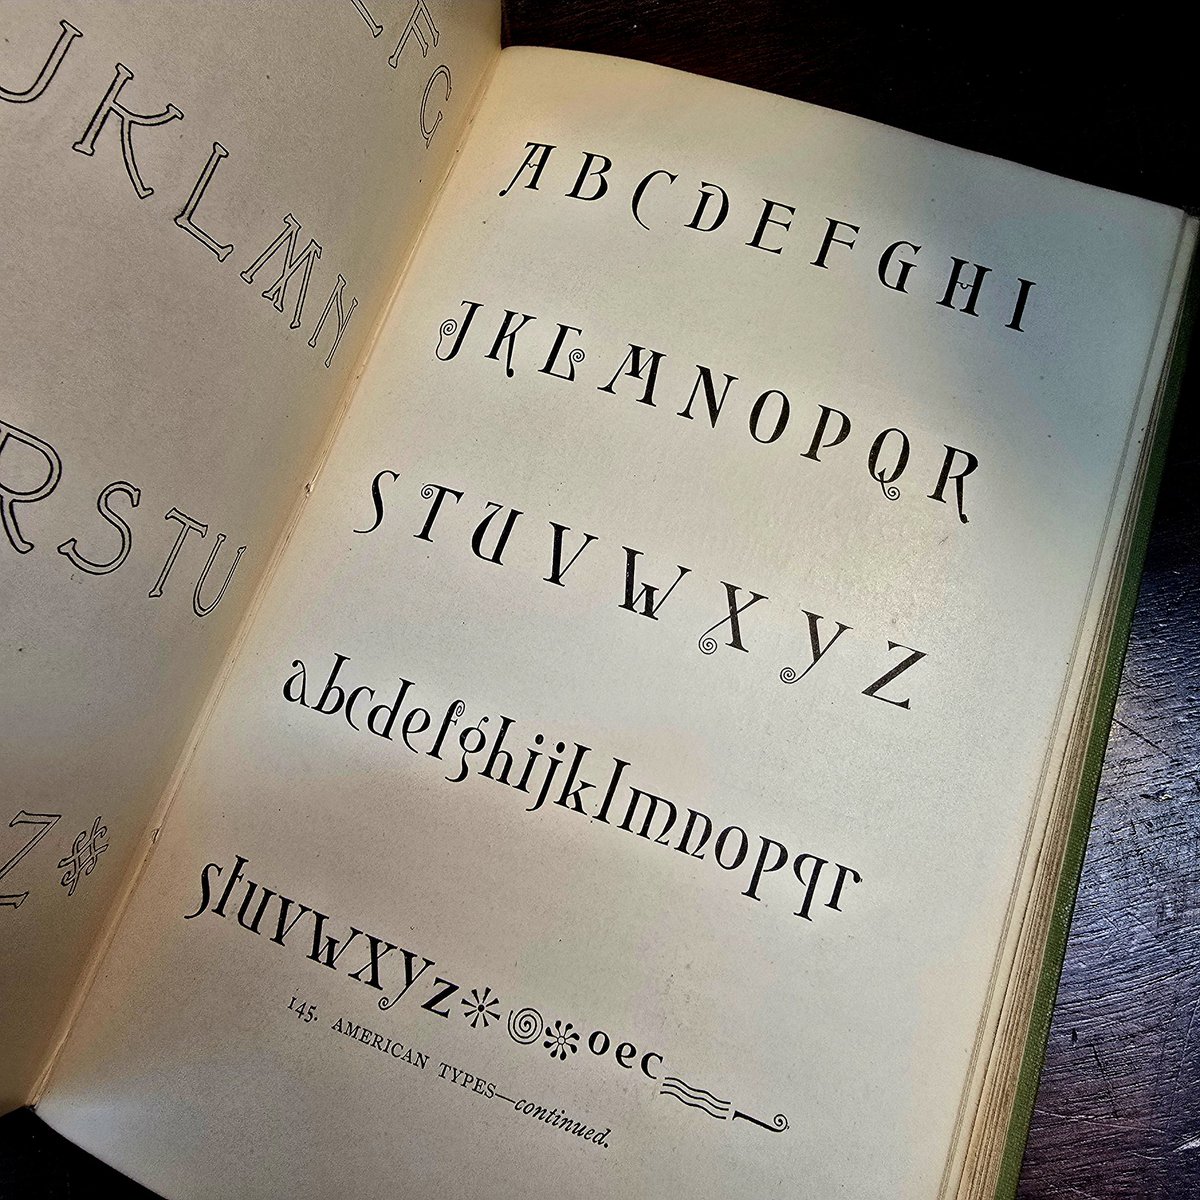 F
G
J K L M N
R S T U
Z
A B C D E F G H I
J K L M N O P Q R
S T U V W X Y Z
abcdefghijklmnopqr
stuvwxyz oec
145. AMERICAN TYPES—continued.